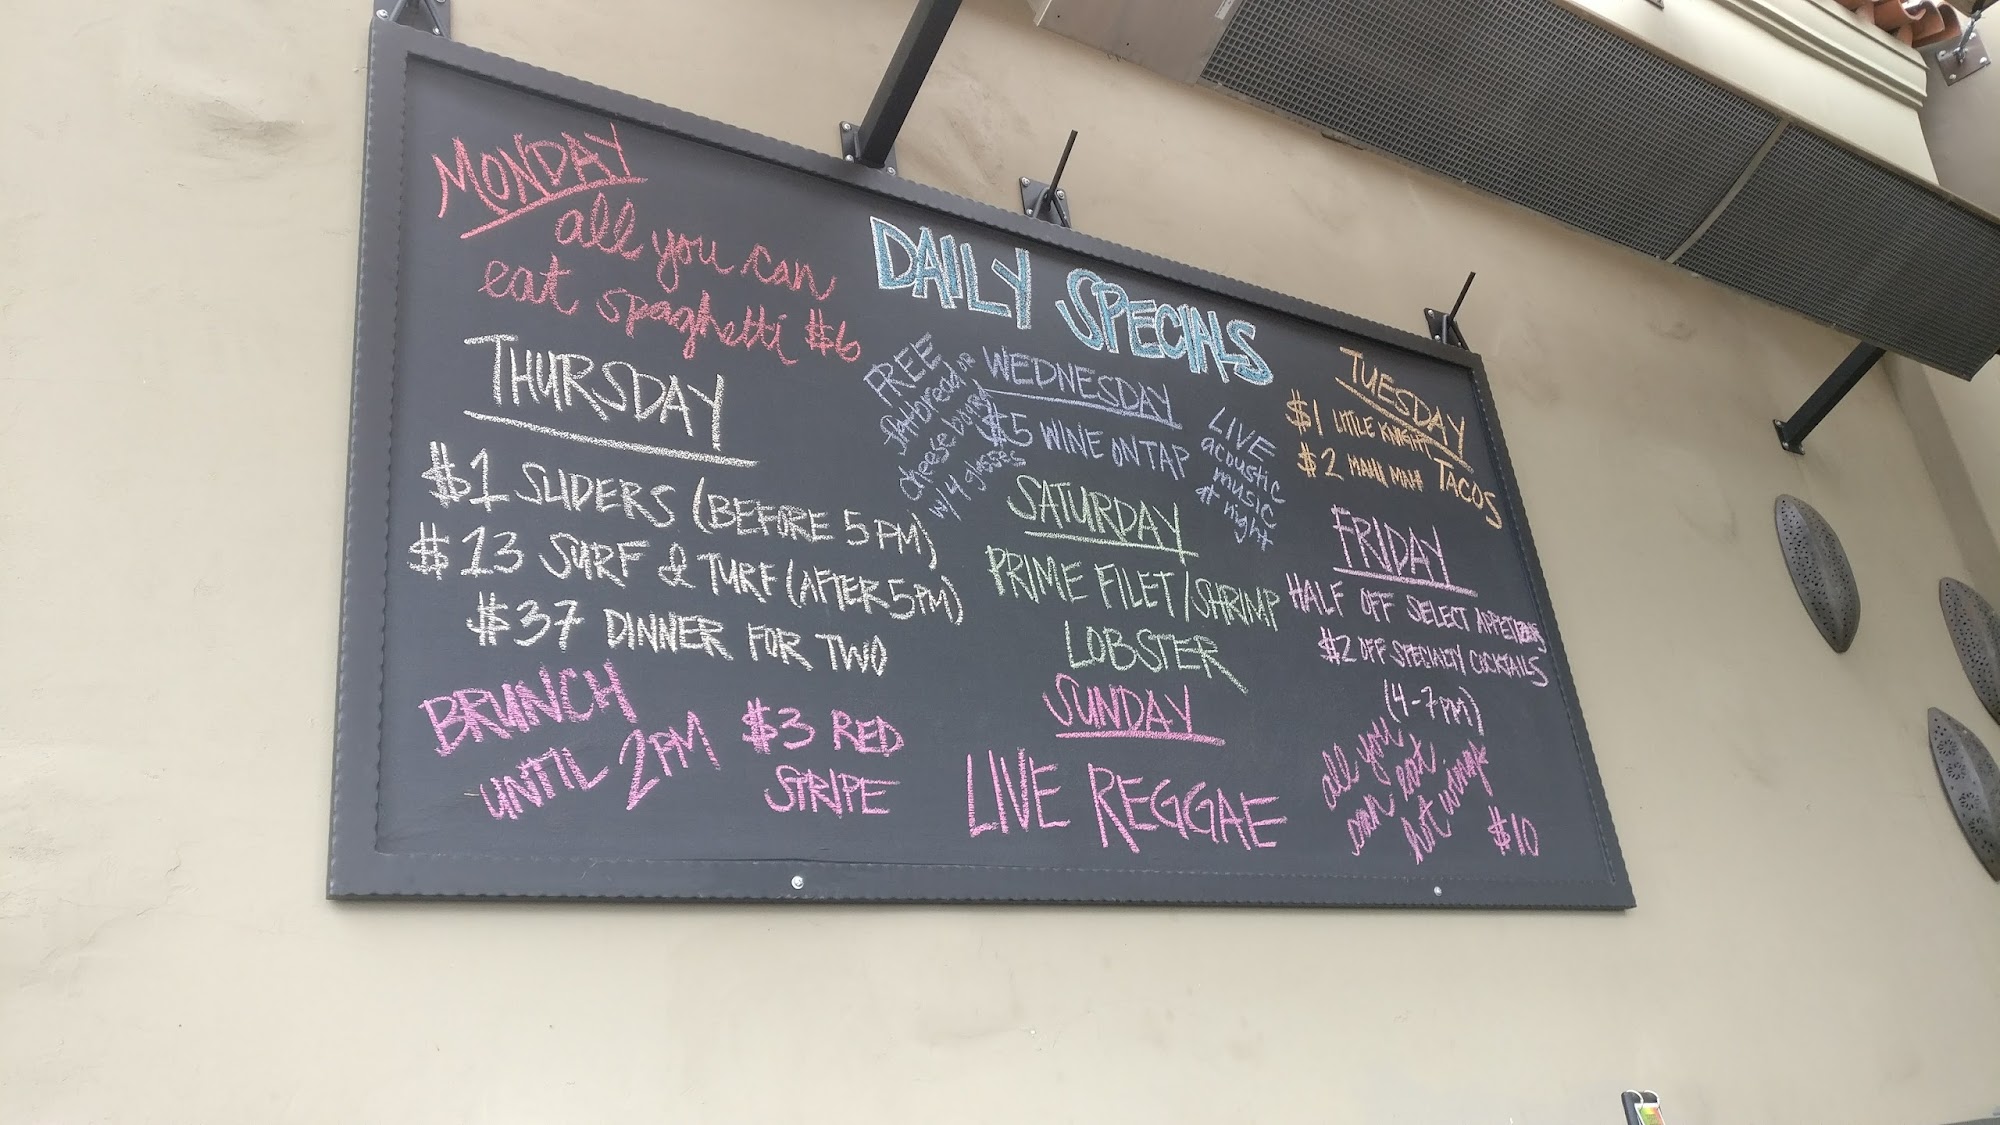 MONDAY
all you can
eat spaghetti $6
DAILY SPECIALS
TUESDAY
$1 LITTLE KNIGHT
$2 MAHI MAHI TACOS
WEDNESDAY
$5 WINE ON TAP
FREE
flatbread or
cheese board
w/ 4 glasses
LIVE
acoustic
music
at night
THURSDAY
$1 SLIDERS (BEFORE 5PM)
$13 SURF & TURF (AFTER 5PM)
$37 DINNER FOR TWO
SATURDAY
PRIME FILET/SHRIMP
LOBSTER
FRIDAY
HALF OFF SELECT
$2 OFF SPECIALTY COCKTAILS
(4-7PM)
SUNDAY
LIVE REGGAE
BRUNCH
UNTIL 2PM
$3 RED
STRIPE
all you
can eat
hot wings
$10